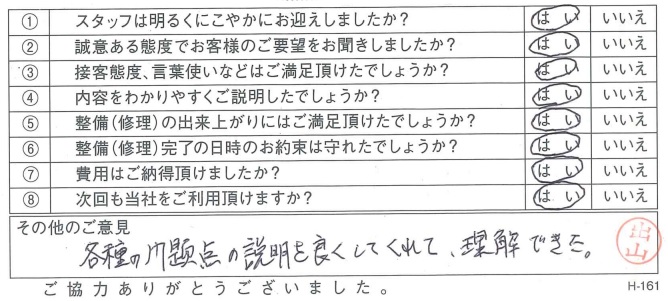 ① スタッフは明るくにこやかにお迎えしましたか? はい いいえ
② 誠意ある態度でお客様のご要望をお聞きしましたか? はい いいえ
③ 接客態度、言葉使いなどはご満足頂けたでしょうか? はい いいえ
④ 内容をわかりやすくご説明したでしょうか? はい いいえ
⑤ 整備(修理)の出来上がりにはご満足頂けたでしょうか? はい いいえ
⑥ 整備(修理)完了の日時のお約束は守れたでしょうか? はい いいえ
⑦ 費用はご納得頂けましたか? はい いいえ
⑧ 次回も当社をご利用頂けますか? はい いいえ
その他のご意見
各種の問題点の説明を良くしてくれて、理解できた。
出山
ご協力ありがとうございました。 H-161